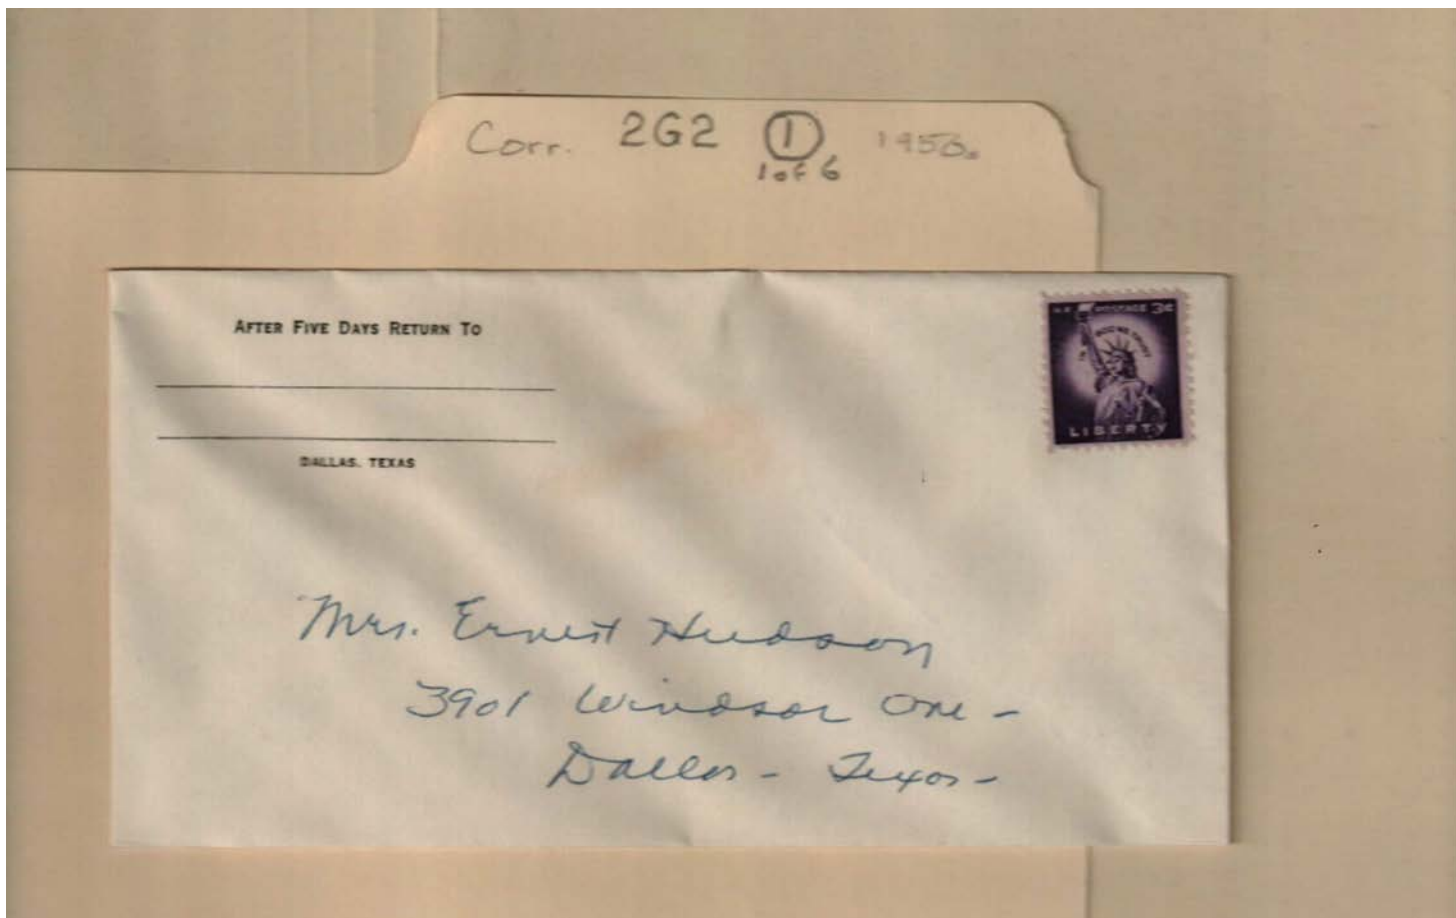 Corr. 2G2 1 1956.
1 of 6
AFTER FIVE DAYS RETURN TO
DALLAS, TEXAS
U.S. POSTAGE 3¢
IN GOD WE TRUST
LIBERTY
Mrs. Ernest Hudson
3901 Windsor Ave -
Dallas - Texas -